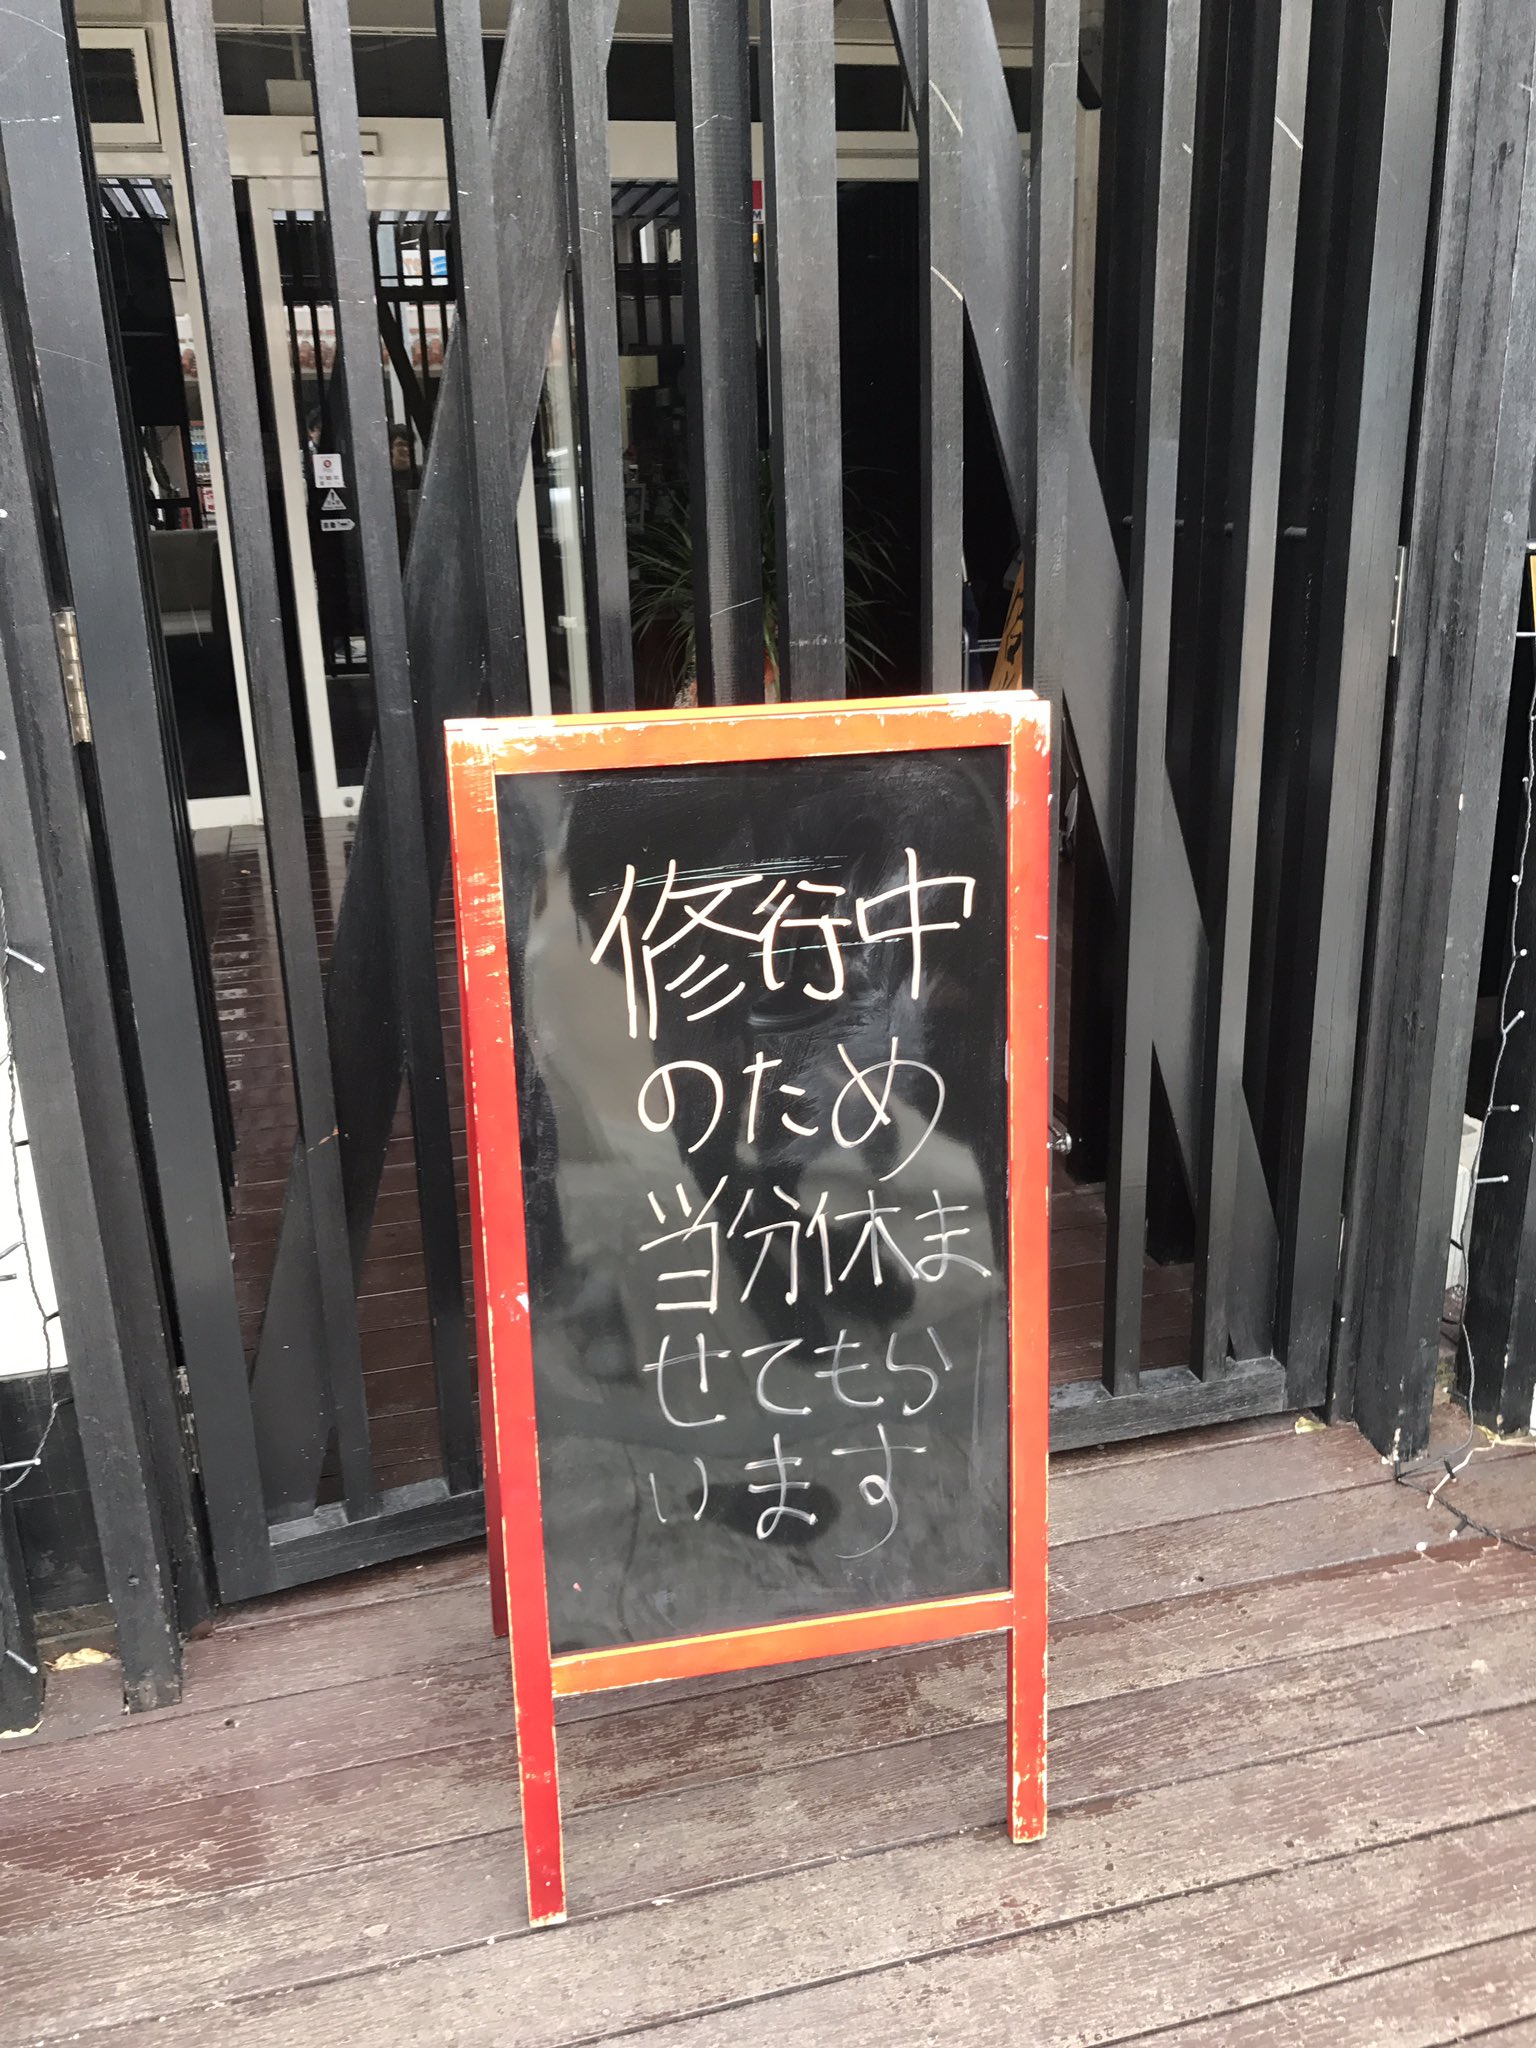 修行中
のため
当分休ま
せてもら
います